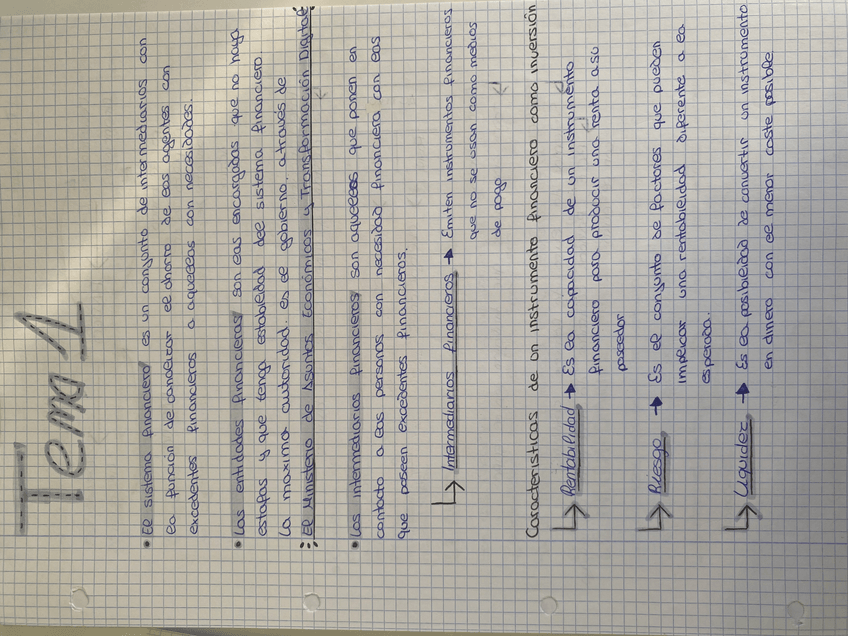 Tema 1
• El sistema financiero es un conjunto de intermediarios con
la función de canalizar el ahorro de los agentes con
excedentes financieros a aquellos con necesidades.
• Las entidades financieras son las encargadas que no haya
estafas y que tenga estabilidad del sistema financiero.
La maxima autoridad es el gobierno, a través de
El Ministerio de Asuntos Económicos y Transformación Digital
• Los intermediarios financieros son aquellos que ponen en
contacto a las personas con necesidad financiera con las
que poseen excedentes financieros.
↳ Intermediarios financieros → Emiten instrumentos financieros
que no se usan como medios
de pago
Características de un instrumento financiero como inversión
↳ Rentabilidad → Es la capacidad de un instrumento
financiero para producir una renta a su
poseedor
↳ Riesgo → Es el conjunto de factores que pueden
implicar una rentabilidad diferente a la
esperada.
↳ Liquidez → Es la posibilidad de convertir un instrumento
en dinero con el menor coste posible.